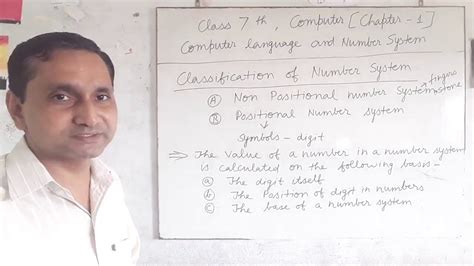 Class 7th, Computer [Chapter - 1]
Computer language and Number System
Classification of Number System
(A) Non Positional number System → fingers stone
(B) Positional Number system
↓
Symbols - digit
⇒ The value of a number in a number system
is calculated on the following basis -
(a) The digit itself
(b) The Position of digit in numbers
(c) The base of a number system